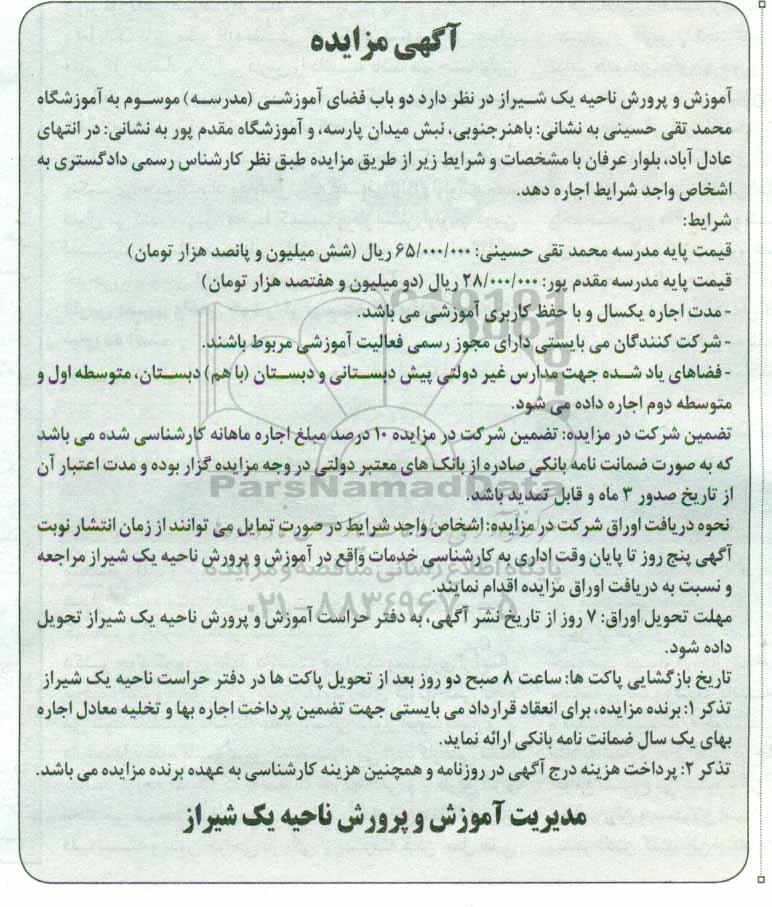 آگهی مزایده
آموزش و پرورش ناحیه یک شیراز در نظر دارد دو باب فضای آموزشی (مدرسه) موسوم به آموزشگاه
محمد تقی حسینی به نشانی: باهنرجنوبی، نبش میدان پارسه، و آموزشگاه مقدم پور به نشانی: در انتهای
عادل آباد، بلوار عرفان با مشخصات و شرایط زیر از طریق مزایده طبق نظر کارشناس رسمی دادگستری به
اشخاص واجد شرایط اجاره دهد.
شرایط:
قیمت پایه مدرسه محمد تقی حسینی: ۶۵/۰۰۰/۰۰۰ ریال (شش میلیون و پانصد هزار تومان)
قیمت پایه مدرسه مقدم پور: ۲۸/۰۰۰/۰۰۰ ریال (دو میلیون و هفتصد هزار تومان)
- مدت اجاره یکسال و با حفظ کاربری آموزشی می باشد.
- شرکت کنندگان می بایستی دارای مجوز رسمی فعالیت آموزشی مربوط باشند.
- فضاهای یاد شده جهت مدارس غیر دولتی پیش دبستانی و دبستان (با هم) دبستان، متوسطه اول و
متوسطه دوم اجاره داده می شود.
تضمین شرکت در مزایده: تضمین شرکت در مزایده ۱۰ درصد مبلغ اجاره ماهانه کارشناسی شده می باشد
که به صورت ضمانت نامه بانکی صادره از بانک های معتبر دولتی در وجه مزایده گزار بوده و مدت اعتبار آن
از تاریخ صدور ۳ ماه و قابل تمدید باشد.
ParsNamadData
نحوه دریافت اوراق شرکت در مزایده: اشخاص واجد شرایط در صورت تمایل می توانند از زمان انتشار نوبت
آگهی پنج روز تا پایان وقت اداری به کارشناسی خدمات واقع در آموزش و پرورش ناحیه یک شیراز مراجعه
و نسبت به دریافت اوراق مزایده اقدام نمایند.
پایگاه اطلاع رسانی مناقصه و مزایده
۰۲۱-۸۸۳۴۹۶۷۰-۵
مهلت تحویل اوراق: ۷ روز از تاریخ نشر آگهی، به دفتر حراست آموزش و پرورش ناحیه یک شیراز تحویل
داده شود.
تاریخ بازگشایی پاکت ها: ساعت ۸ صبح دو روز بعد از تحویل پاکت ها در دفتر حراست ناحیه یک شیراز
تذکر ۱: برنده مزایده، برای انعقاد قرارداد می بایستی جهت تضمین پرداخت اجاره بها و تخلیه معادل اجاره
بهای یک سال ضمانت نامه بانکی ارائه نماید.
تذکر ۲: پرداخت هزینه درج آگهی در روزنامه و همچنین هزینه کارشناسی به عهده برنده مزایده می باشد.
مدیریت آموزش و پرورش ناحیه یک شیراز